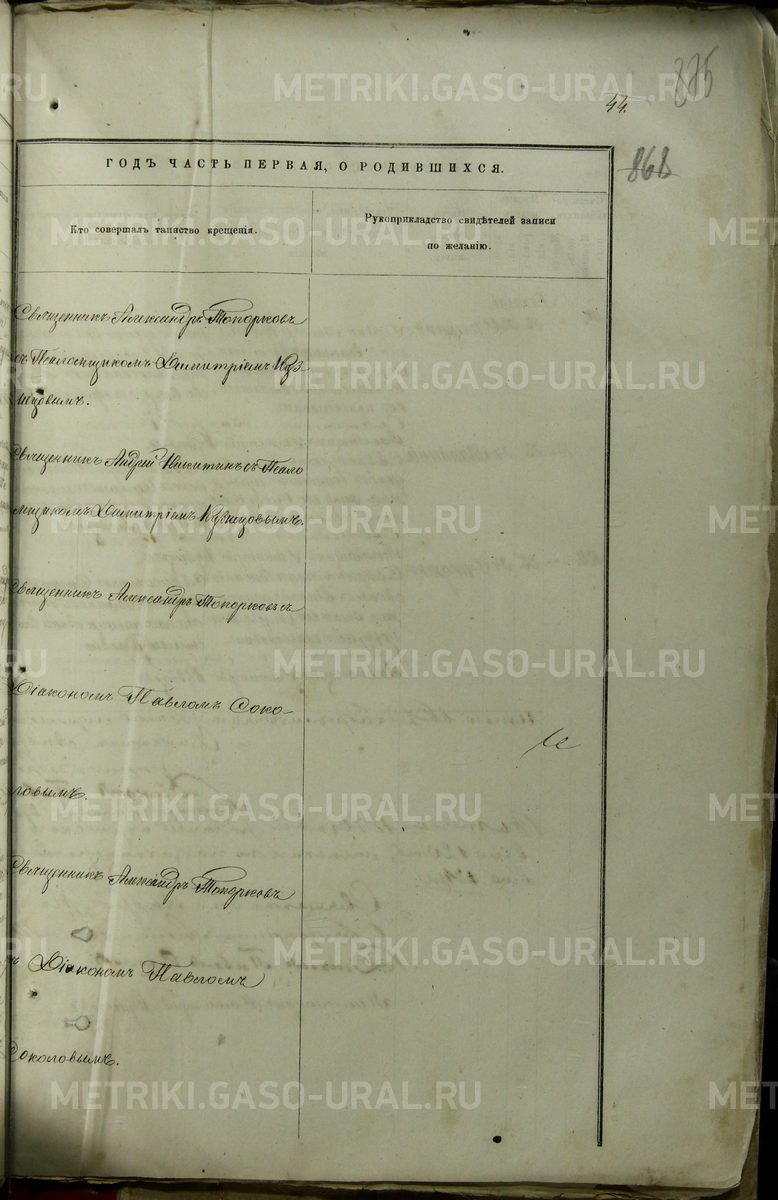 875
44.
868
ГОДЪ ЧАСТЬ ПЕРВАЯ, О РОДИВШИХСЯ.
Кто совершалъ таинство крещенія.
Рукоприкладство свидѣтелей записи
по желанію.
Священникъ Александръ Топорковъ
съ Псаломщикомъ Димитріемъ Куз-
нецовымъ.
Священникъ Андрей Никитинъ съ Псало
мщикомъ Димитріемъ Кузнецовымъ.
Священникъ Александръ Топорковъ съ
Діакономъ Павломъ Соко-
ловымъ.
Священникъ Александръ Топорковъ
съ Діакономъ Павломъ
Соколовымъ.
METRIKI.GASO-URAL.RU